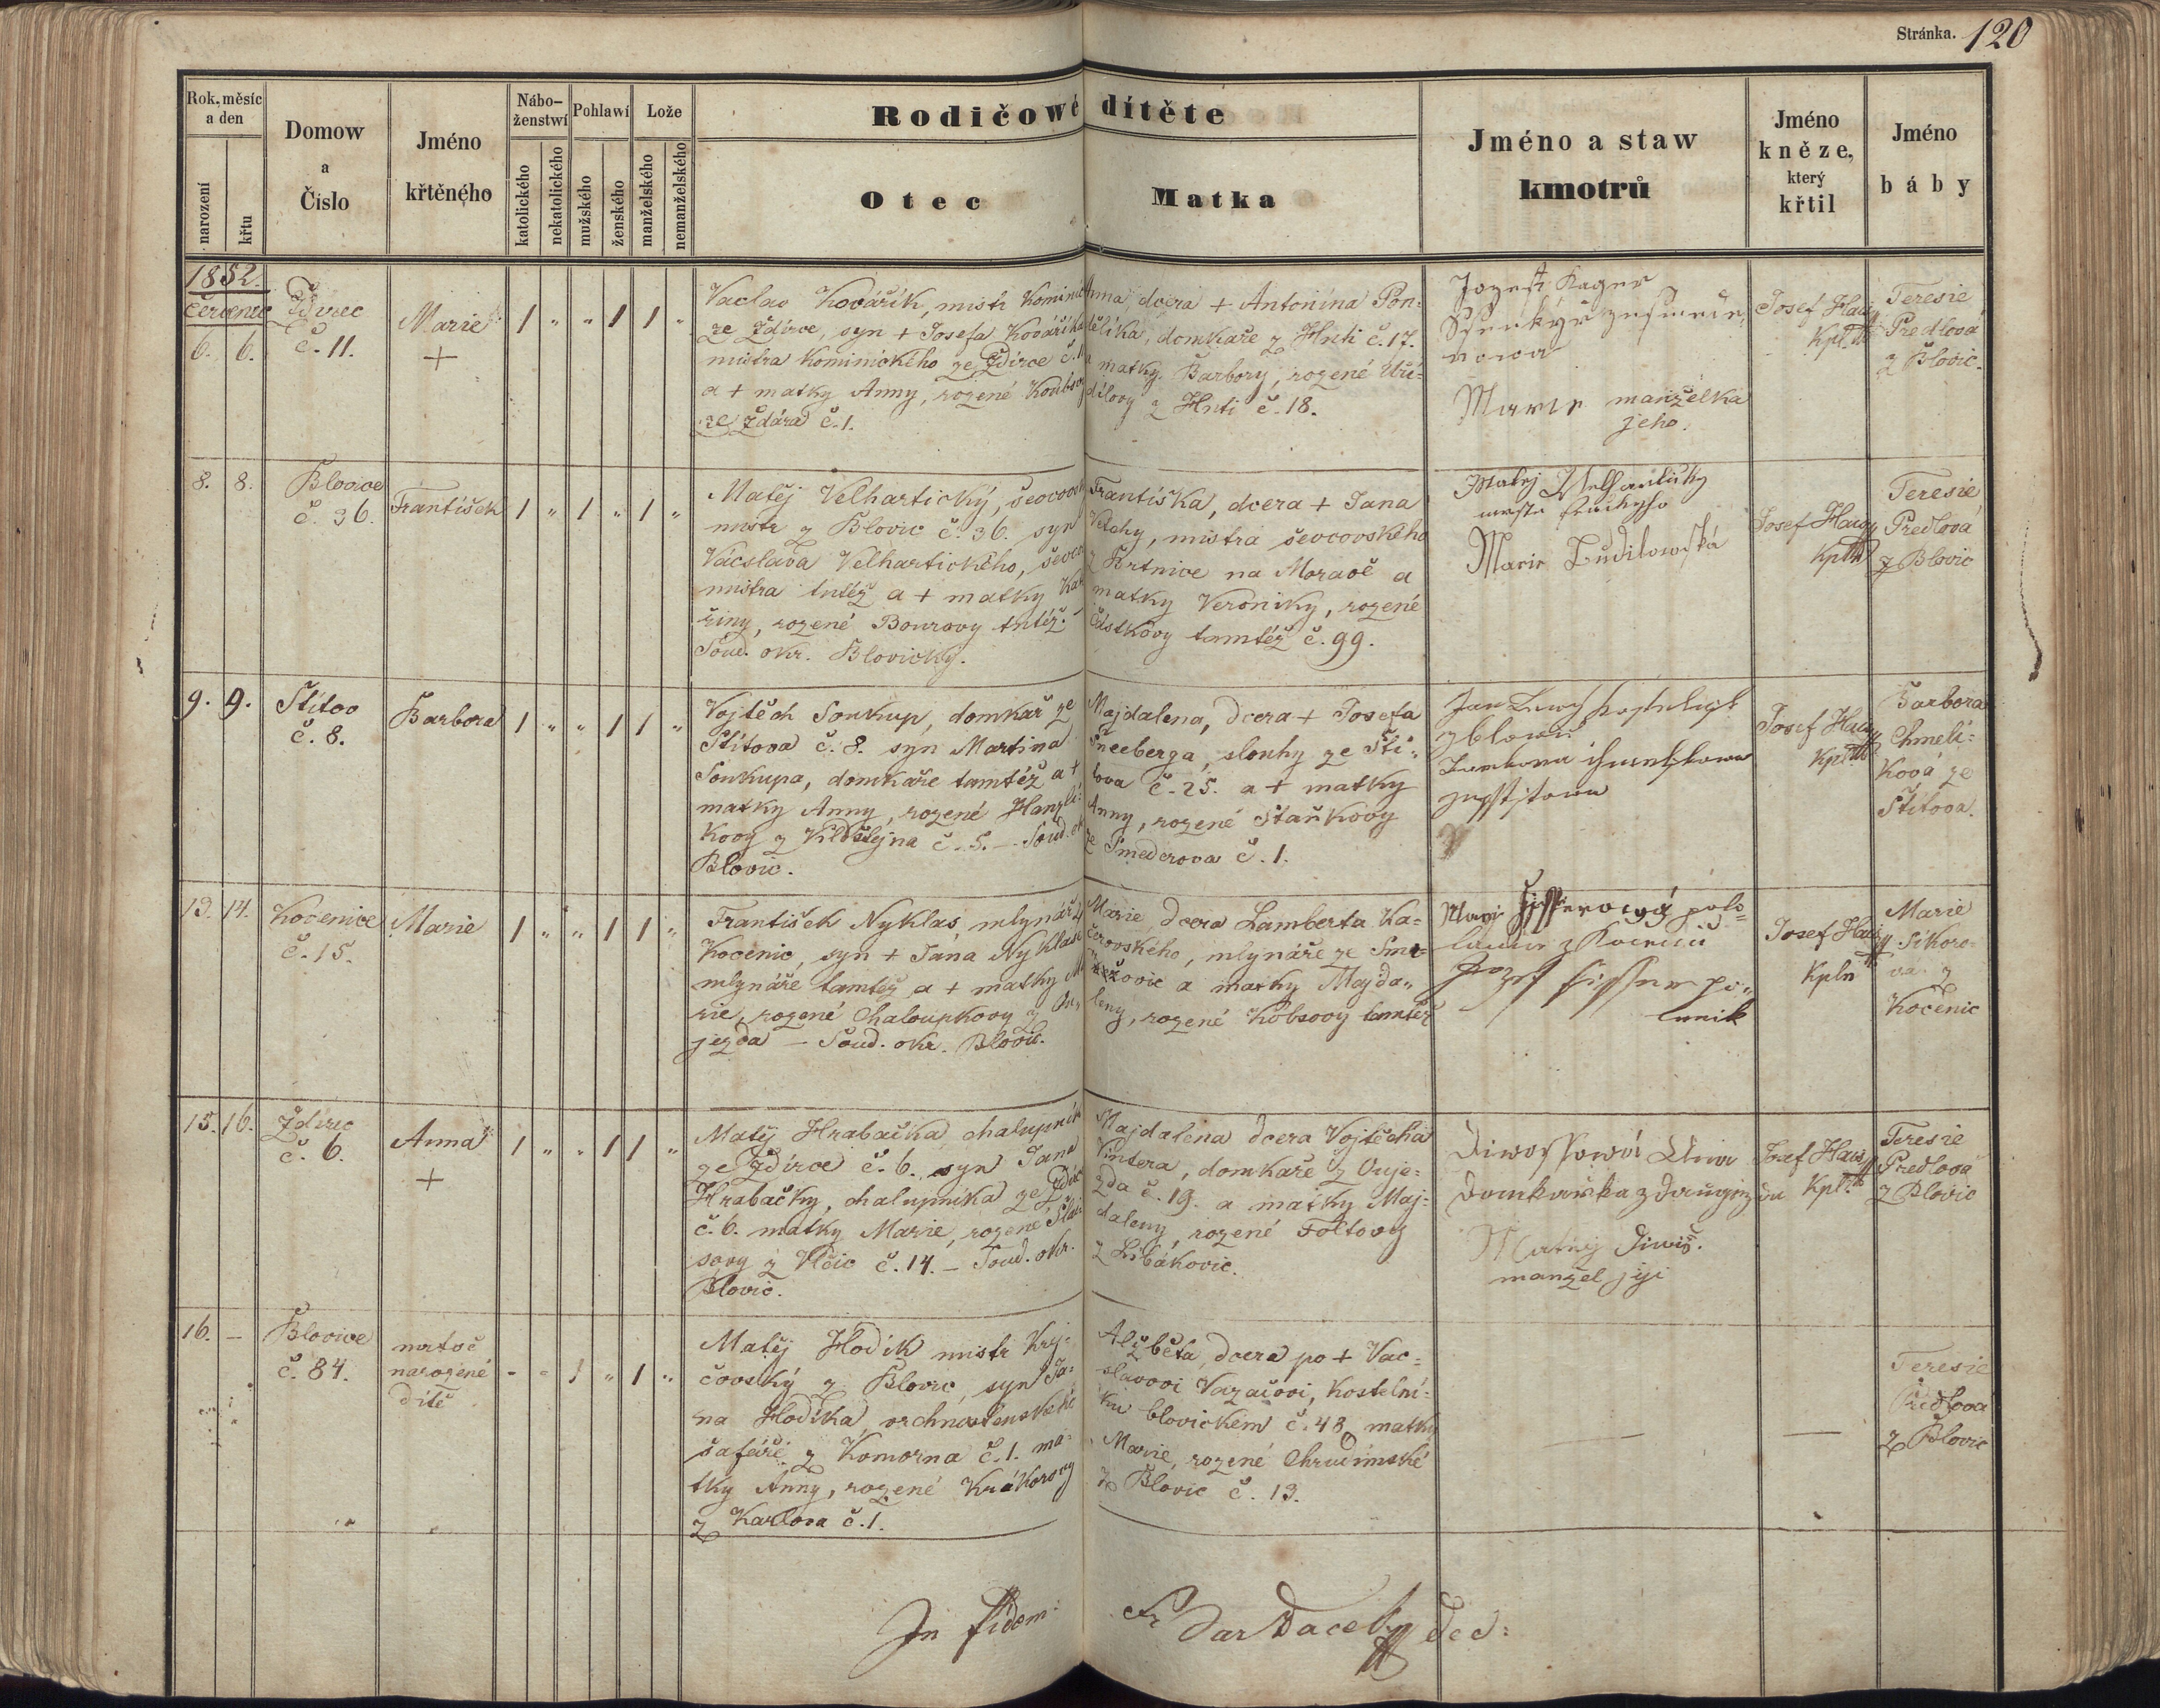 Stránka. 120
Rok, měsíc a den
narození
křtu
Domow a Číslo
Jméno křtěného
Nábo-ženstwí
katolického
nekatolického
Pohlawí
mužského
ženského
Lože
manželského
nemanželského
Rodičowé dítěte
Otec
Matka
Jméno a staw kmotrů
Jméno kněze, který křtil
Jméno báby
1852.
Červenec
6. 6.
Ždirec
č. 11.
Marie
+
1 " " 1 1 "
Vaclav Kovářík, mistr Kominic
ze Ždírce, syn + Josefa Kováříka
mistra Kominického ze Ždírce č. 11
a + matky Anny, rozené
ze Ždára č. 1.
Anna, dcera + Antonína Pon-
dělíka, domkaře z Hutí č. 17.
a matky Barbory, rozené Uři-
dilovy z Hutí č. 18.
Jozef Kager
Marie manželka
jeho.
Josef Hauy
Kpl.
Teresie
Predlová
z Blovic.
8. 8.
Blovice
č. 36.
František
1 " 1 " 1 "
Matěj Velhartický, ševcovský
mistr z Blovic č. 36. syn
Václava Velhartického, ševco
mistra tutéž a + matky Kat
řiny, rozené Bourovy tutéž.
Soud. okr. Blovický.
Františka, dcera + Jana
Vetchy, mistra ševcovského
z Brtnice na Moravě a
matky Veroniky, rozené
Částkovy tamtéž č. 99.
Matěj Welhartický
Marie Budilowská
Josef Hauy
Kpln
Teresie
Predlová
z Blovic
9. 9.
Štítov
č. 8.
Barbora
1 " " 1 1 "
Vojtěch Soukup, domkař ze
Štítova č. 8. syn Martina
Soukupa, domkaře tamtéž a +
matky Anny, rozené Hanzlí-
kovy z Vildštejna č. 5. — Soud. ok
Blovic.
Majdalena, dcera + Josefa
Šneeberga, slouhy ze Ští-
tova č. 25. a + matky
Anny, rozené Staňkovy
ze Smederova č. 1.
Josef Hauy
Kpln
Barbora
Chmeli-
ková ze
Štítova.
13. 14.
Kocenice
č. 15.
Marie
1 " " 1 1 "
František Nyklas, mlynář z
Kocenic, syn + Jána Nyklasa
mlynáře tamtéž a + matky Ma
rie, rozené Chaloupkovy z Ou-
jezda — Soud. okr. Blovic.
Marie, dcera Lamberta Ka-
čerovského, mlynáře ze
a matky Majda-
leny, rozené Kobsovy tamtéž
Josef Hauy
Kpln
Marie
Sikoro-
vá z
Kočenic
15. 16.
Zdirec
č. 6.
Anna
+
1 " " 1 1 "
Matěj Hrabačka, chalupník
ze Ždírce č. 6. syn Jana
Hrabačky, chalupníka ze Ždír
č. 6. matky Marie, rozené
sovy z Vlčic č. 14. — Soud. okr.
Blovic.
Majdalena dcera Vojtěcha
Vintera, domkaře z Ouje-
zda č. 19. a matky Maj-
daleny, rozené Foltovy
z Libákovic.
Matěj Diwiš.
manžel její
Josef Hauy
Kpl.
Teresie
Predlová
z Blovic
16. —
Blovice
č. 84.
mrtvě
narozené
dítě
- - 1 " 1 "
Matěj Hodík mistr Krej-
čovský z Blovic, syn Ja-
na Hodíka, vrchnostenského
šafáře z Komorna č. 1. ma-
tky Anny, rozené Krákorovy
z Karlova č. 1.
Alžběta, dcera po + Vác-
slavovi Vazačovi, kostelní-
ku blovickém č. 48, matky
Marie, rozené Chrudimské
z Blovic č. 13.
—
—
Teresie
Predlová
z Blovic
In fidem